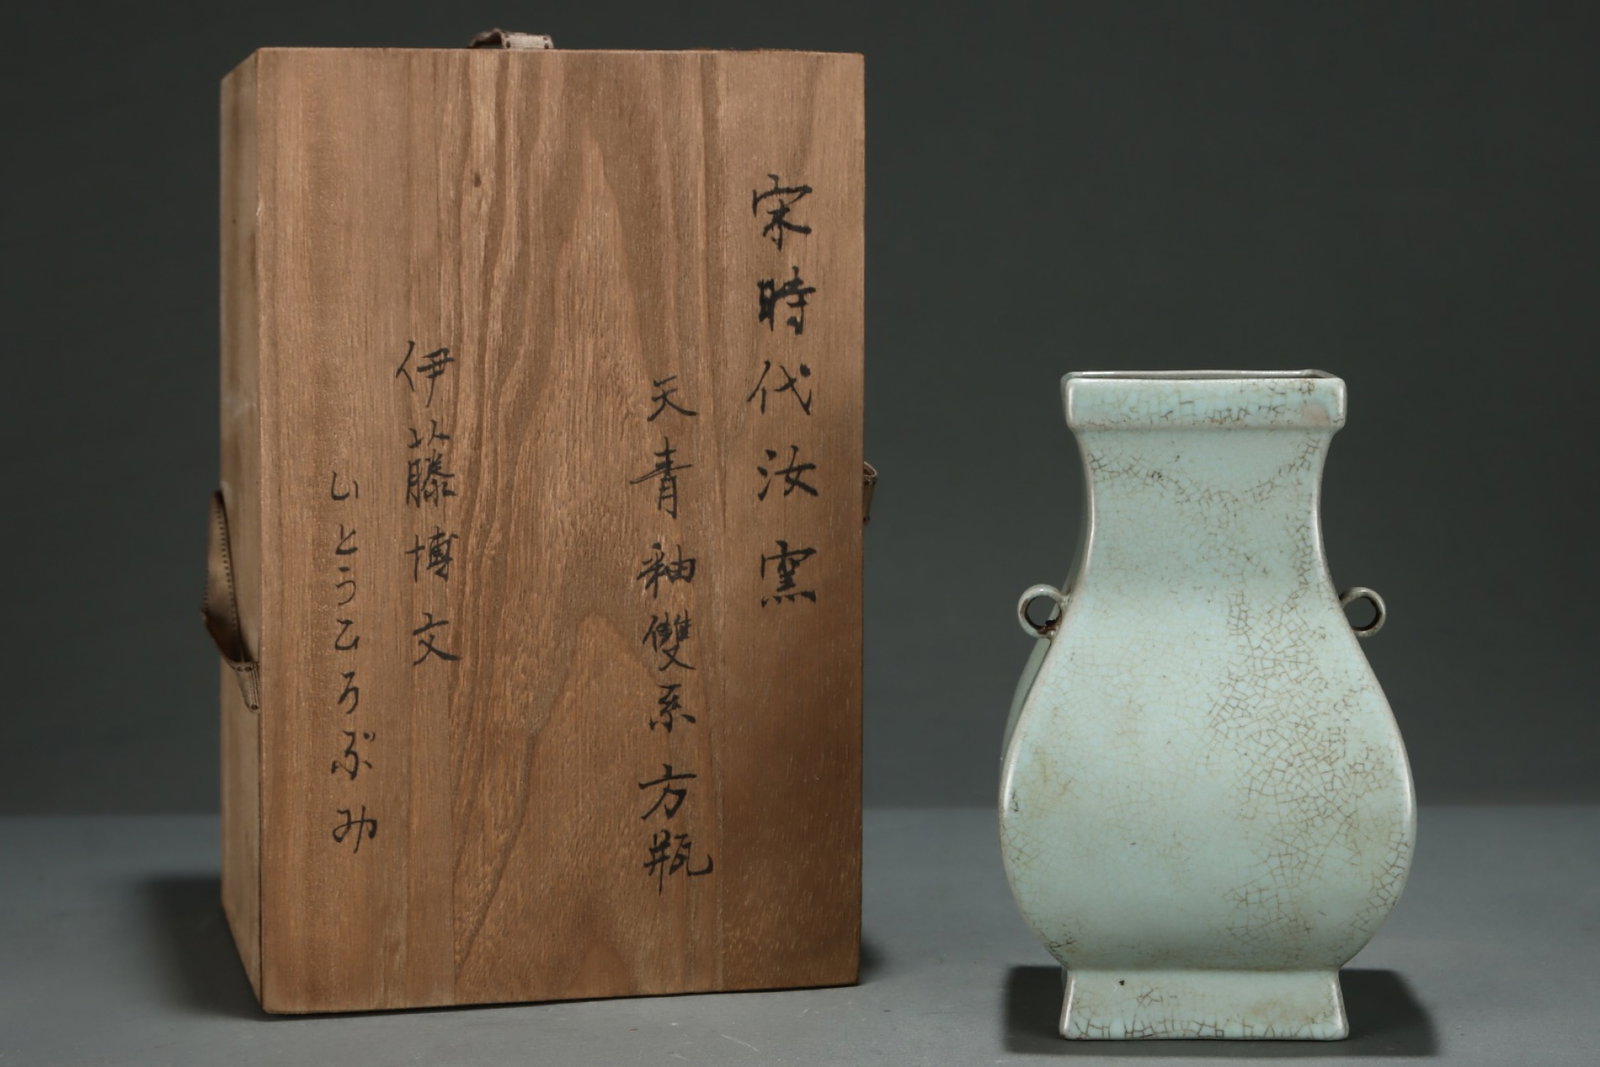 宋時代汝窯
天青釉雙系方瓶
伊藤博文
いとうひろぶみ